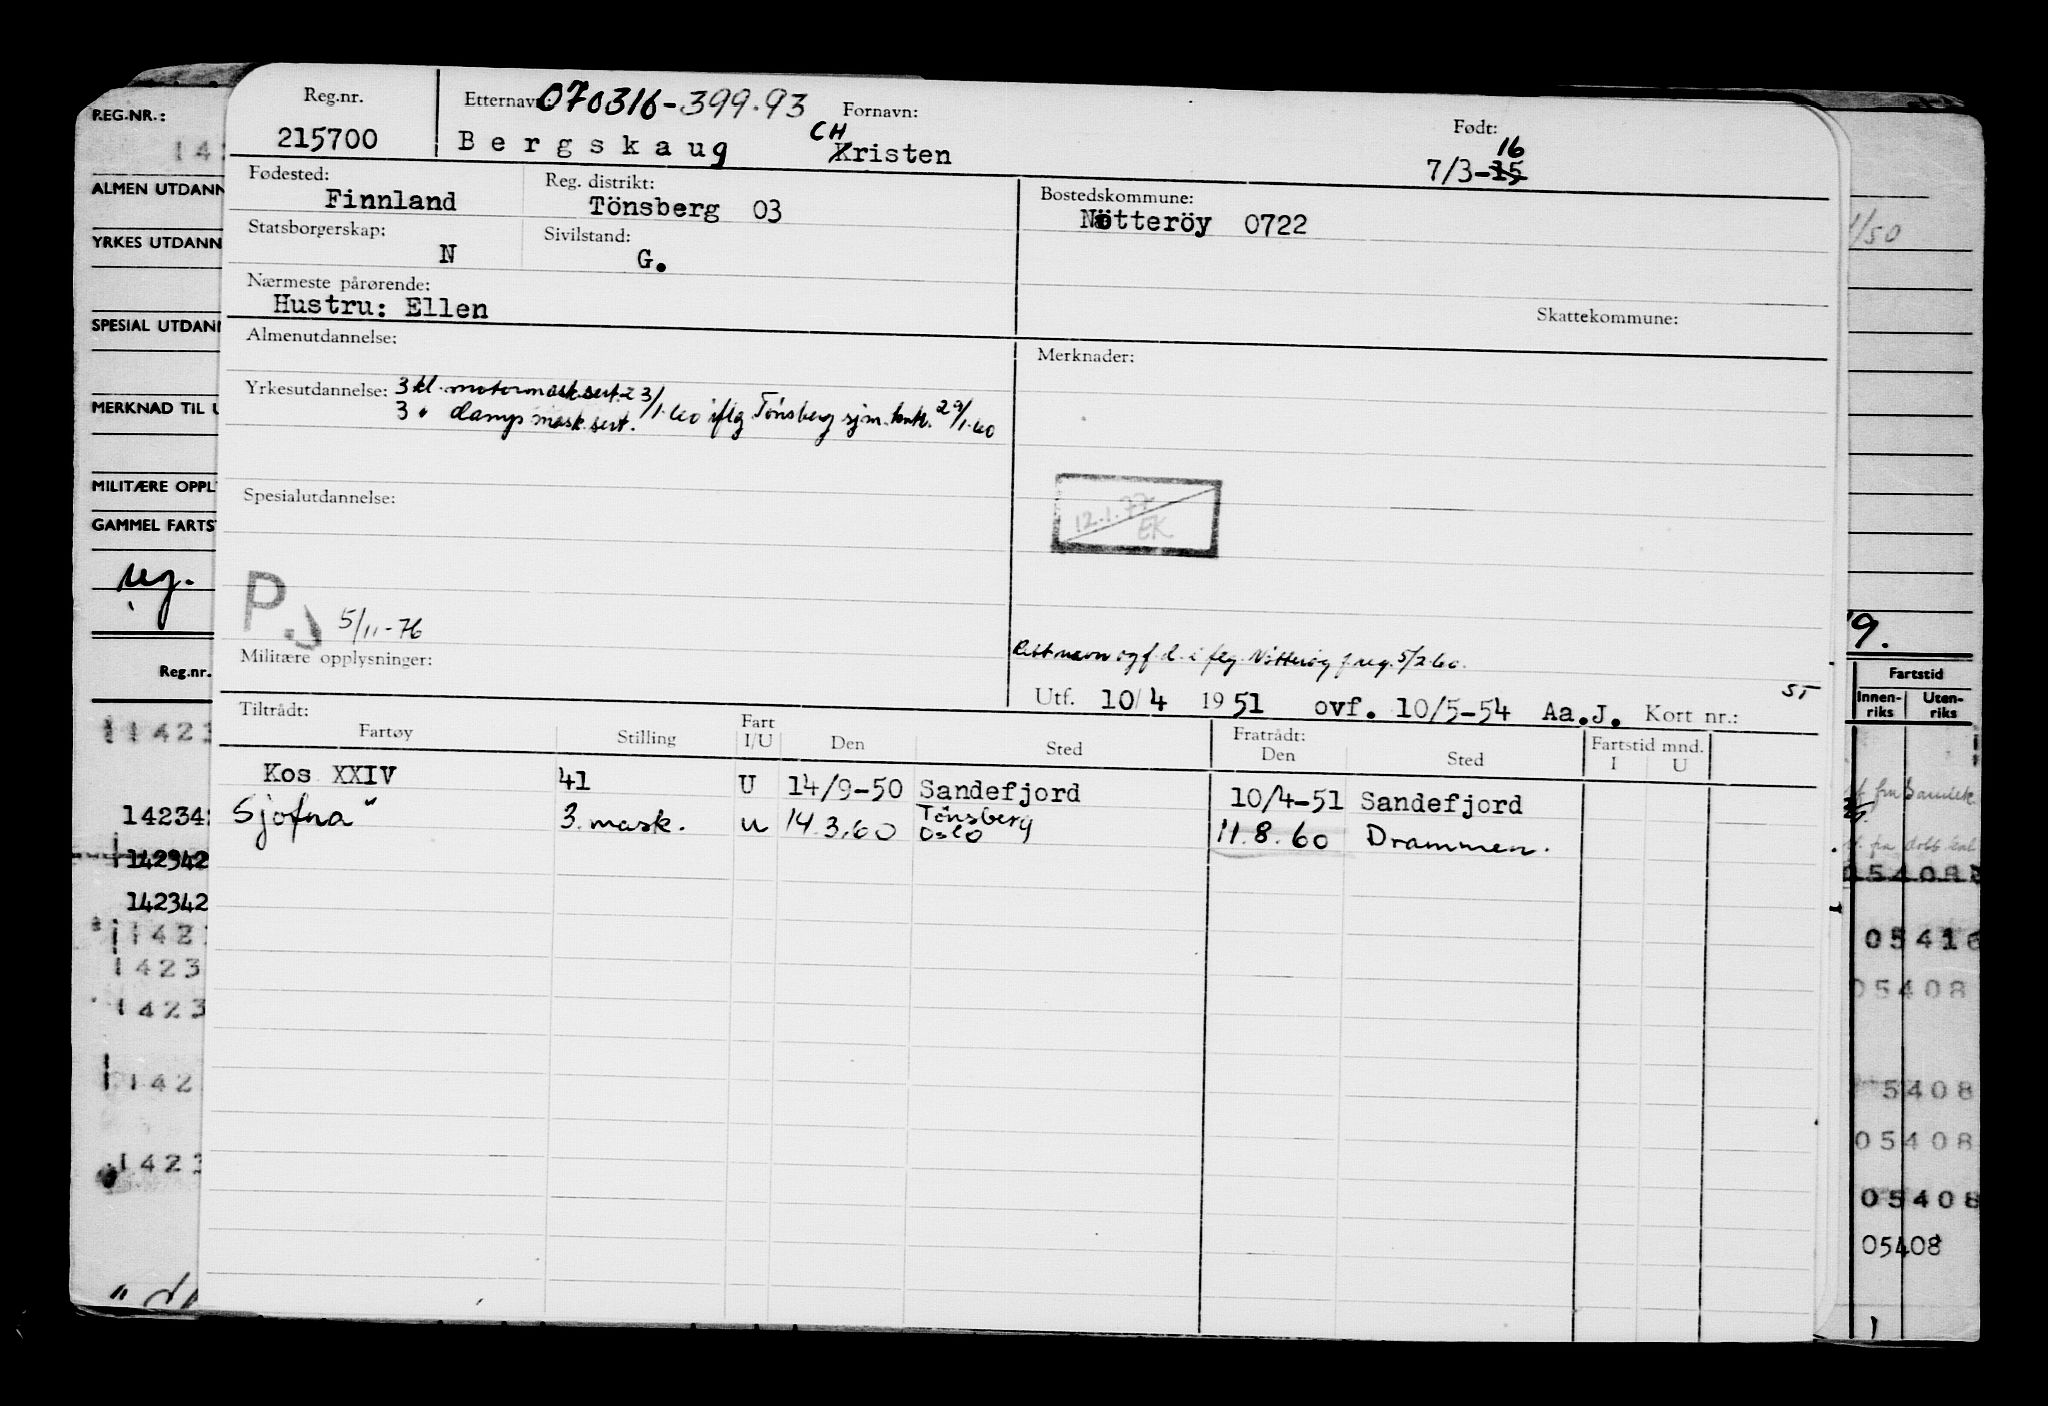 REG.NR.:
ALMEN UTDANN
YRKES UTDANN
SPESIAL UTDAN
MERKNAD TIL U
MILITÆRE OPPL
GAMMEL FARTS
reg.
Reg.nr.
11423
142342
142342
142342
1142
1423
1423
142
1423
Reg.nr. Etternavn: 070316-399.93 Fornavn: Født:
215700 Bergskaug CH Kristen 7/3-15 16
Fødested: Reg. distrikt: Bostedskommune:
Finnland Tönsberg 03 Nötteröy 0722
Statsborgerskap: Sivilstand:
N G.
Nærmeste pårørende:
Hustru: Ellen Skattekommune:
Almenutdannelse: Merknader:
Yrkesutdannelse: 3 kl. motormask.sert. 23/1.60 iflg Tönsberg sjm.kntr. 29/1.60
3 " damp mask.sert.
Spesialutdannelse: 12.1.77
EK
P.J 5/11-76
Rett navn og f.d. i flg. Nötteröy f.reg. 5/2.60.
Militære opplysninger:
Utf. 10/4 1951 ovf. 10/5-54 Aa.J. Kort nr.: ST
Tiltrådt: Fratrådt:
Fartøy Stilling Fart I/U Den Sted Den Sted Fartstid mnd. I U
Kos XXIV 41 U 14/9-50 Sandefjord 10/4-51 Sandefjord
Sjofna" 3. mask. u 14.3.60 Tönsberg Oslo 11.8.60 Drammen.
/50
9.
Fartstid
Innen-riks Uten-riks
05408
05416
05408
5408
05408
05408
05408